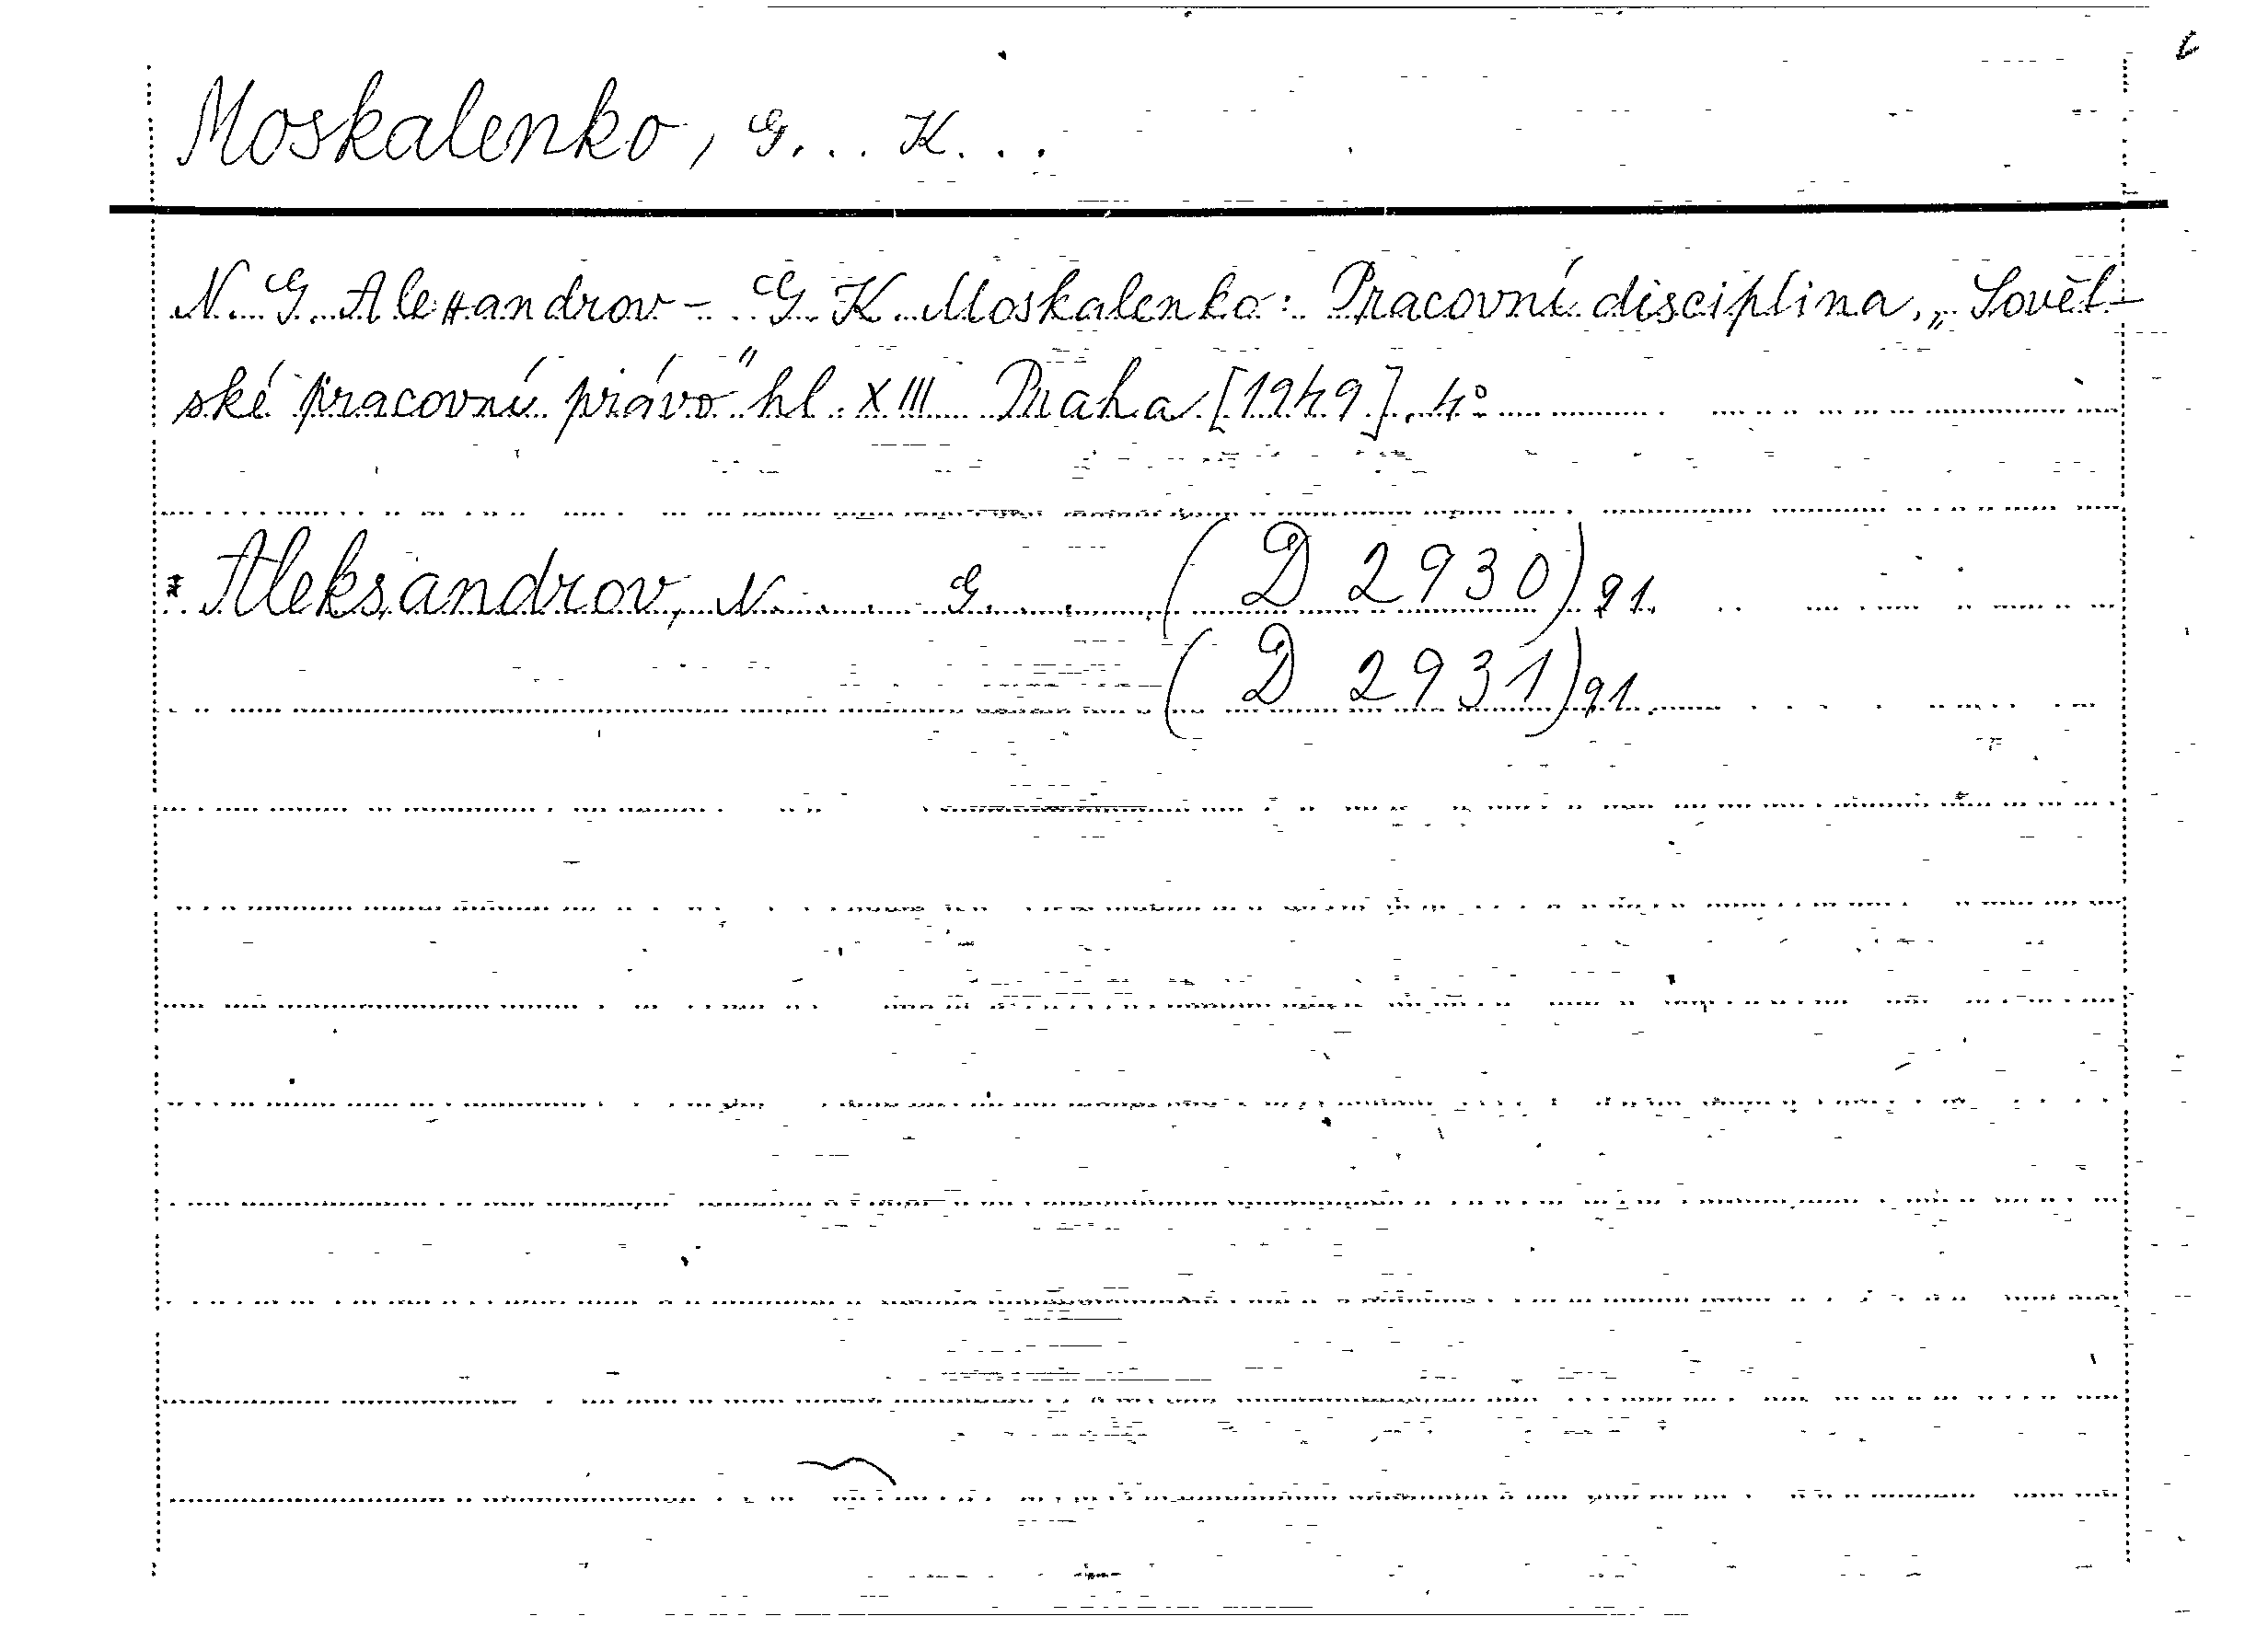 Moskalenko, G... K...
N. G. Alexandrov - G. K. Moskalenko: Pracovní disciplina. „Sovět-
ské pracovní právo" hl. XIII Praha [1949]. 4°
* Aleksandrov, N... G... (D 2930) 91.
(D 2931) 91.